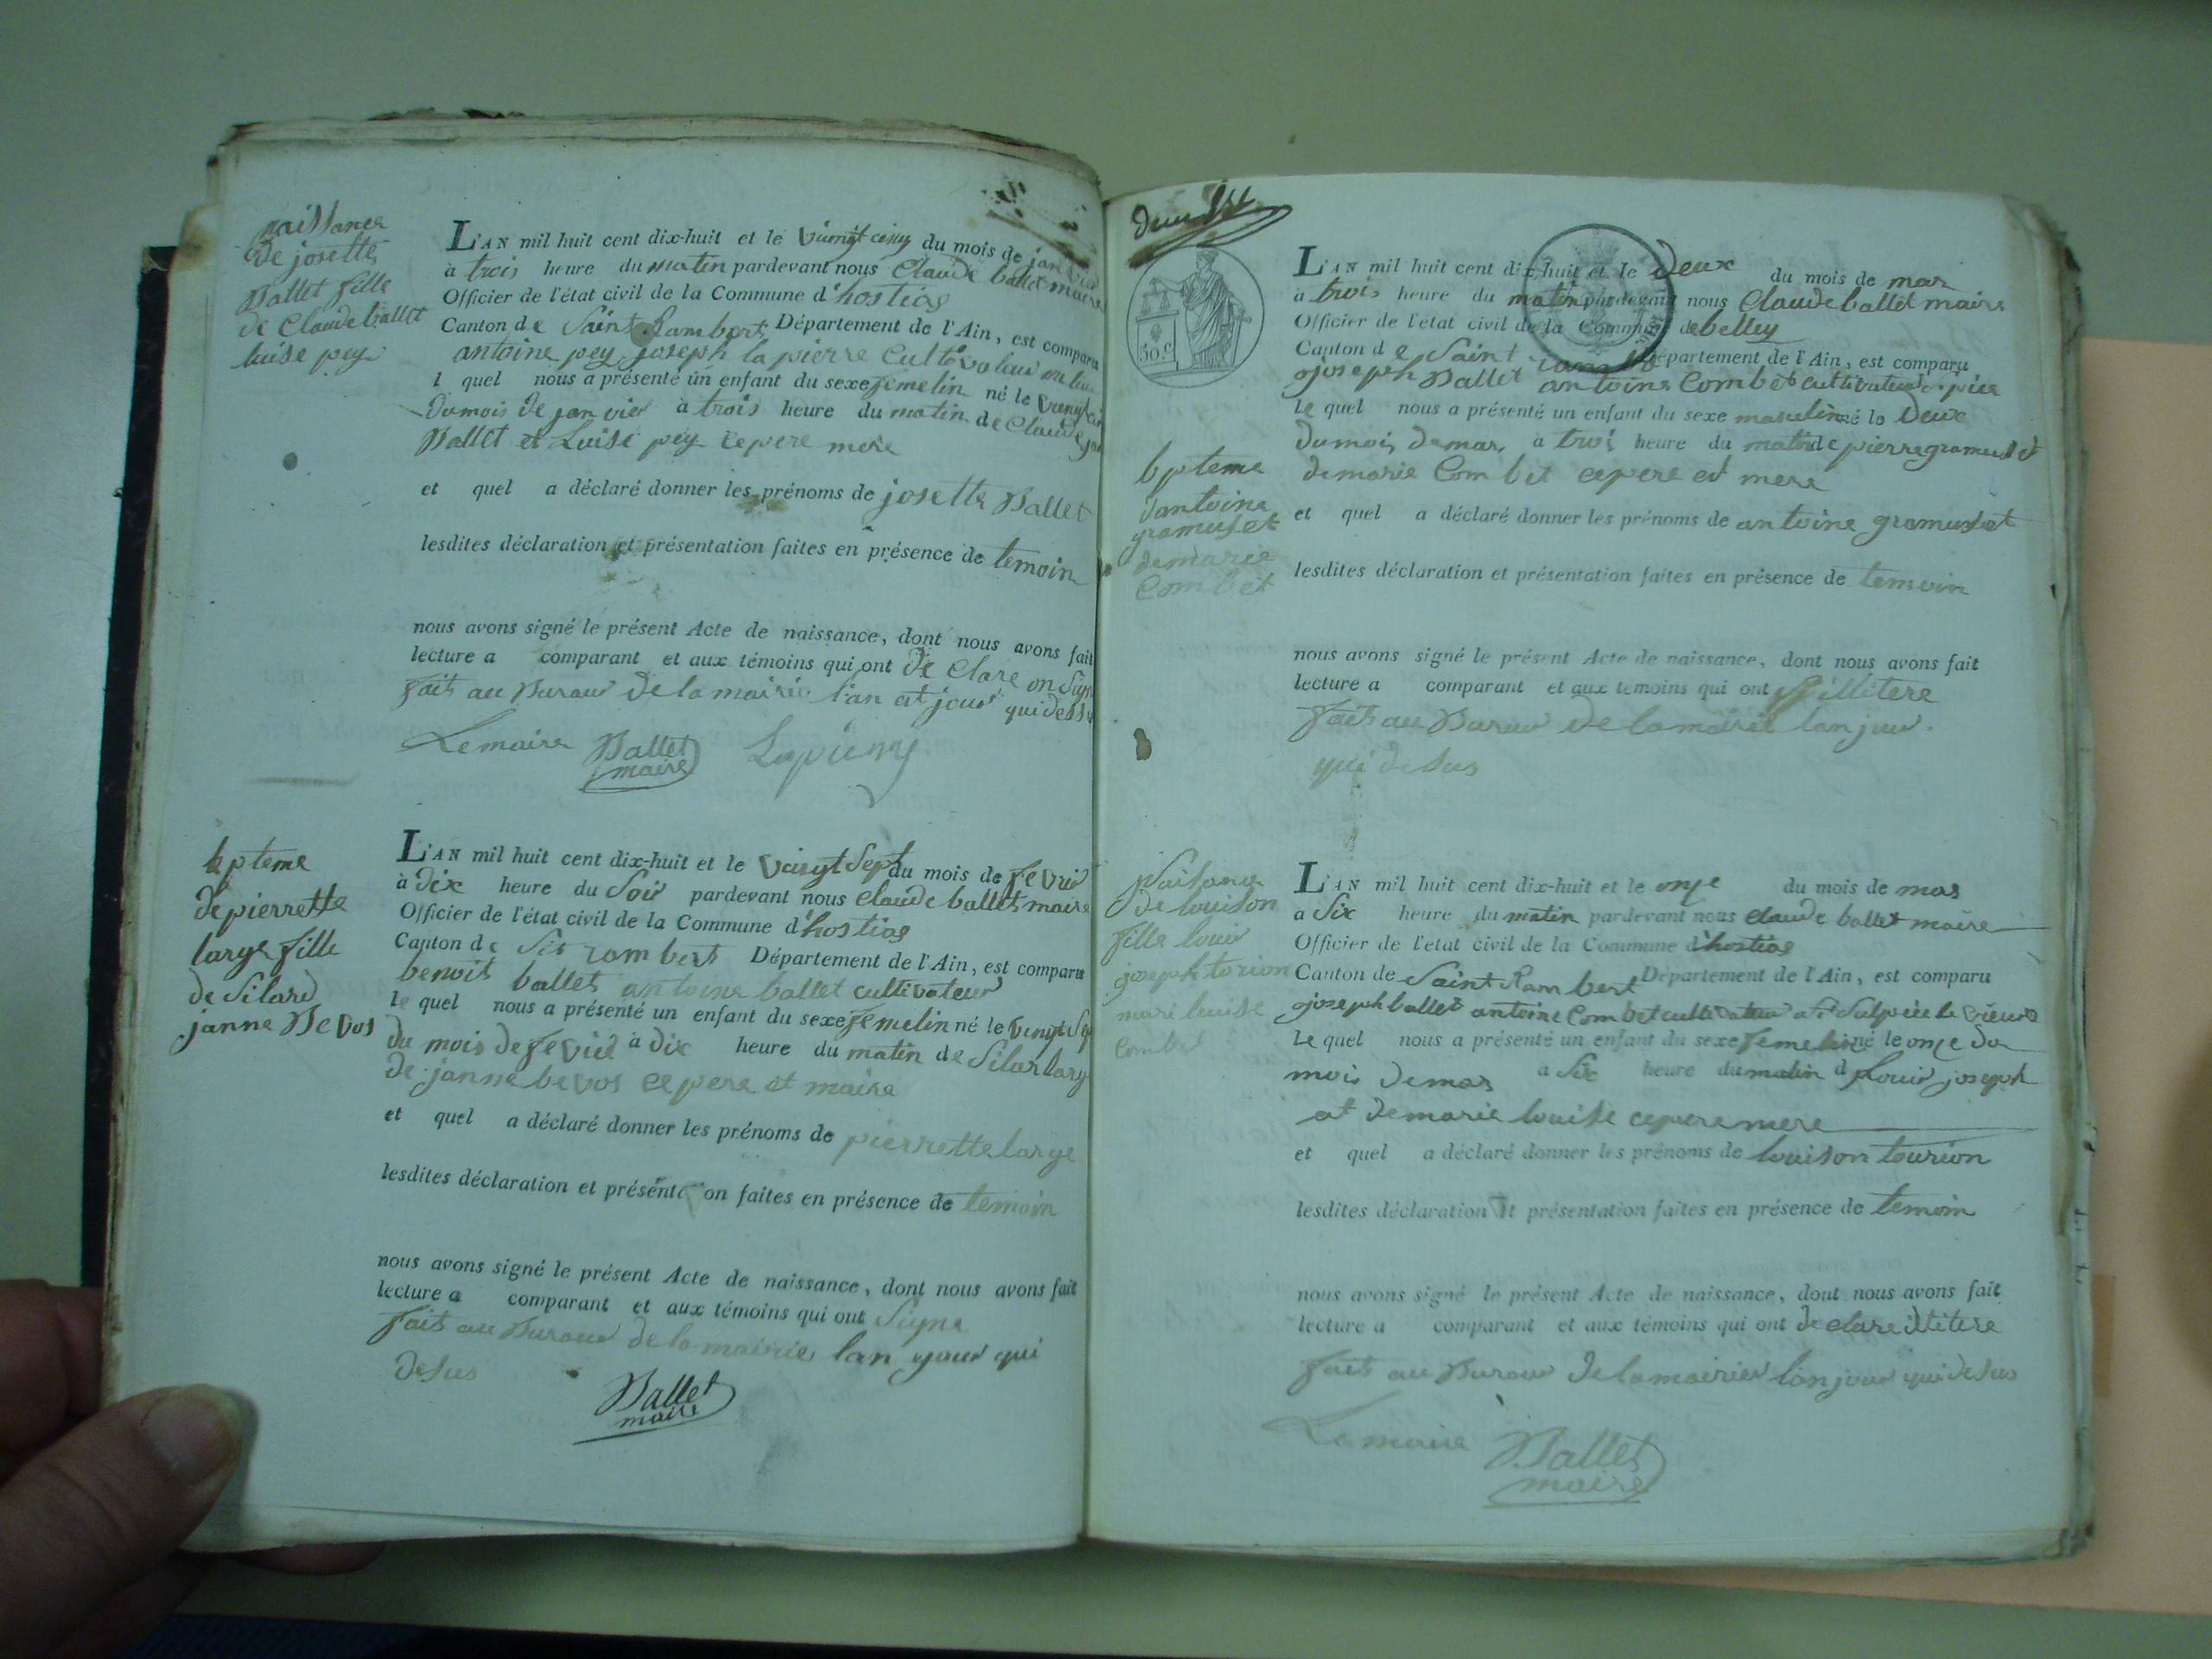 naissance
de josette
Ballet fille
de Claude ballet
luise pey
L'AN mil huit cent dix-huit et le vingt cinq du mois de janvier
à trois heure du matin pardevant nous Claude ballet maire
Officier de l'état civil de la Commune d'hostias
Canton de Saint Rambert Département de l'Ain, est comparu
antoine pey joseph la pierre Cultivateur
l quel nous a présenté un enfant du sexe femelin né le
du mois de janvier à trois heure du matin de Claude
Ballet et Luise pey ce pere mere
et quel a déclaré donner les prénoms de josette Ballet
lesdites déclaration et présentation faites en présence de temoin
nous avons signé le présent Acte de naissance, dont nous avons fait
lecture a comparant et aux témoins qui ont de Clare on
fait au Burau de la mairie l'an et jour qui
Lemaire Ballet
maire
bpteme
de pierrette
large fille
de Silard
janne Bevos
L'AN mil huit cent dix-huit et le vaingt Sept du mois de fevrie
à dix heure du Soir pardevant nous Claude ballet maire
Officier de l'état civil de la Commune d'hostias
Canton de rambert Département de l'Ain, est comparu
benoit ballet antoine ballet cultivateur
le quel nous a présenté un enfant du sexe femelin né le
du mois de à dix heure du matin de
de janne bevos ce pere et maire
et quel a déclaré donner les prénoms de pierrette large
lesdites déclaration et présentation faites en présence de temoin
nous avons signé le présent Acte de naissance, dont nous avons fait
lecture a comparant et aux témoins qui ont Signe
fait au Burau de la mairie lan jour qui
desus
Ballet
maire
50.c
L'AN mil huit cent dix-huit et le deux du mois de mar
à trois heure du matin pardevant nous Claude ballet maire
Officier de l'état civil de la Commune de belley
Canton de Saint Département de l'Ain, est comparu
joseph Ballet antoine Combet cultivateur
le quel nous a présenté un enfant du sexe masulin né le Deux
du mois de mar à trois heure du matin de pierre gramuset et
de marie Combet ce pere et mere
bpteme
dantoine
gramuset
de marie
Combet
et quel a déclaré donner les prénoms de antoine gramuset
lesdites déclaration et présentation faites en présence de temoin
nous avons signé le présent Acte de naissance, dont nous avons fait
lecture a comparant et aux témoins qui ont illitere
fait au Burau de la mairie lan jour
qui desus
de louison
fille louis
joseph torion
mari luise
Combet
L'AN mil huit cent dix-huit et le onze du mois de mas
a Six heure du matin pardevant nous claude ballet maire
Officier de l'état civil de la Commune d'hostias
Canton de Saint Rambert Département de l'Ain, est comparu
joseph ballet antoine Combet cultivateur Sulpice le vieux
le quel nous a présenté un enfant du sexe femelin né le onze du
mois de mas a Six heure du matin d Louis joseph
et de marie louise ce pere mere
et quel a déclaré donner les prénoms de louison tourion
lesdites déclaration et présentation faites en présence de temoin
nous avons signé le présent Acte de naissance, dont nous avons fait
lecture a comparant et aux témoins qui ont de clare
fait au Burau de la mairie lan jour qui desus
Lemaire Ballet
maire